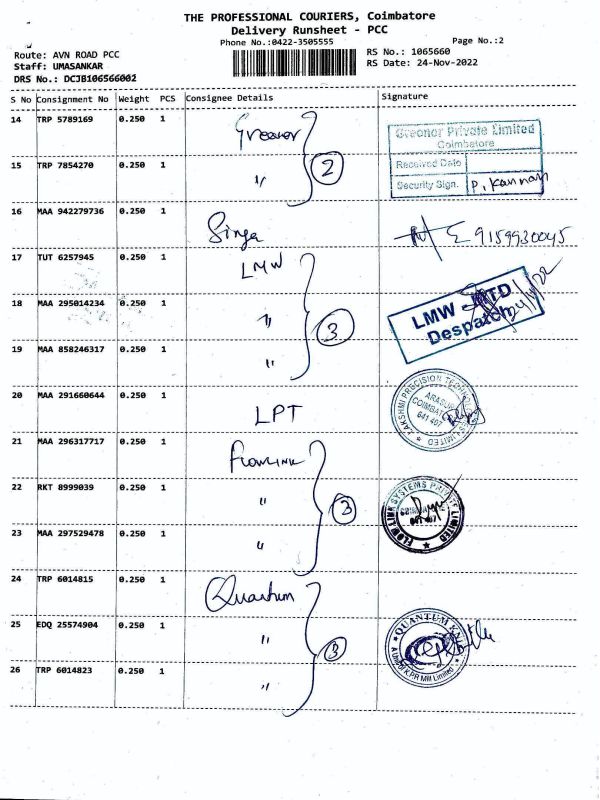 THE PROFESSIONAL COURIERS, Coimbatore
Delivery Runsheet - PCC
Phone No.:0422-3505555
Page No.:2
Route: AVN ROAD PCC
RS No.: 1065660
Staff: UMASANKAR
RS Date: 24-Nov-2022
DRS No.: DCJB106566002
S No Consignment No Weight PCS Consignee Details Signature
14 TRP 5789169 0.250 1 Greenor
Greenor Private Limited
Coimbatore
Received Date
15 TRP 7854270 0.250 1 〃 2
Security Sign. P. Kannan
16 MAA 942279736 0.250 1 9159930045
17 TUT 6257945 0.250 1 LMW
18 MAA 295014234 0.250 1 〃 3
LMW
Despatch
19 MAA 858246317 0.250 1 〃
20 MAA 291660644 0.250 1 LPT
LAKSHMI PRECISION TECHNOLOGIES LIMITED
COIMBATORE
641 407
21 MAA 296317717 0.250 1 FlowLINK
22 RKT 8999039 0.250 1 〃 3
FLOWLINK SYSTEMS PRIVATE LIMITED
23 MAA 297529478 0.250 1 〃
24 TRP 6014815 0.250 1 Quantum
25 EDQ 25574904 0.250 1 〃 3
QUANTUM
A Unit of K.P.R Mill Limited
26 TRP 6014823 0.250 1 〃